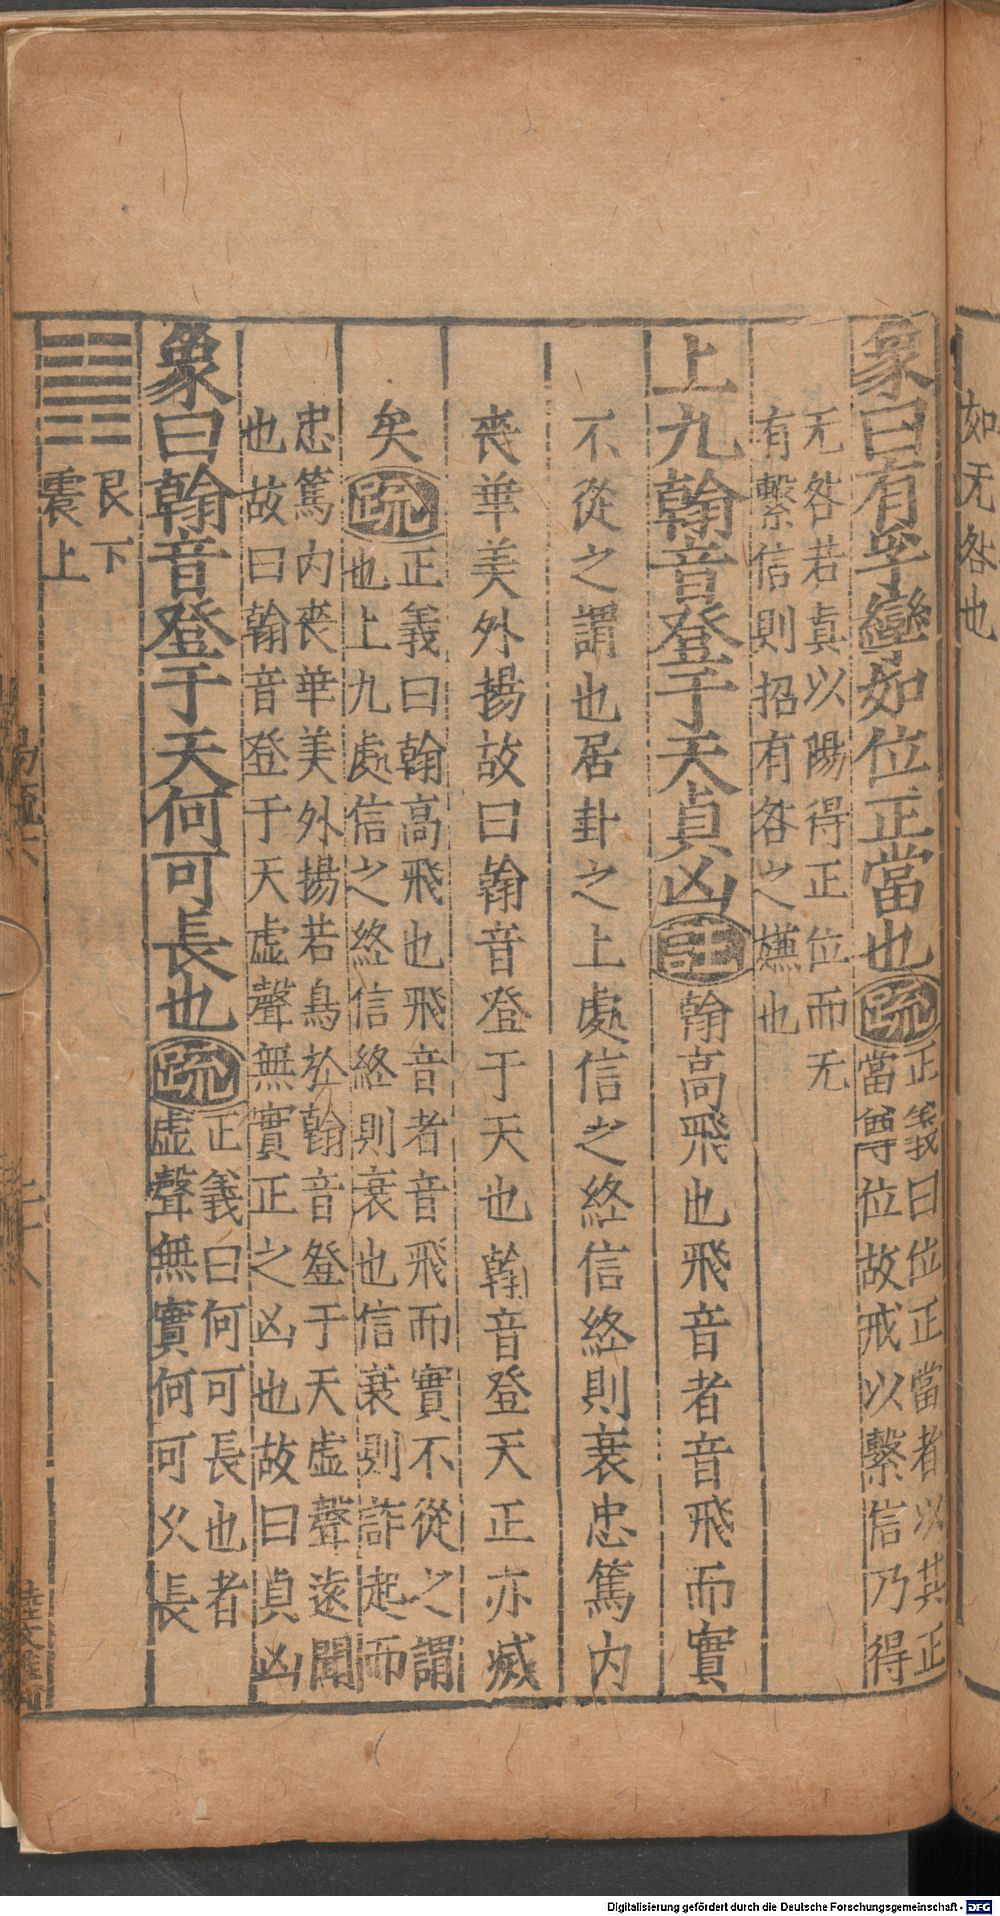 如无咎也
象曰有孚攣如位正當也疏正義曰位正當者以其正
當尊位故戒以繫信乃得
无咎若真以陽得正位而无
有繫信則招有咎之嫌也
上九翰音登于天貞凶註翰高飛也飛音者音飛而實
不從之謂也居卦之上處信之終信終則衰忠篤內
喪華美外揚故曰翰音登于天也翰音登天正亦滅
矣疏正義曰翰高飛也飛音者音飛而實不從之謂
也上九處信之終信終則衰也信衰則詐起而
忠篤內喪華美外揚若鳥於翰音登于天虛聲遠聞
也故曰翰音登于天虛聲無實正之凶也故曰貞凶
象曰翰音登于天何可長也疏正義曰何可長也者
虛聲無實何可久長
艮下
震上
二十八
Digitalisierung gefördert durch die Deutsche Forschungsgemeinschaft - DFG